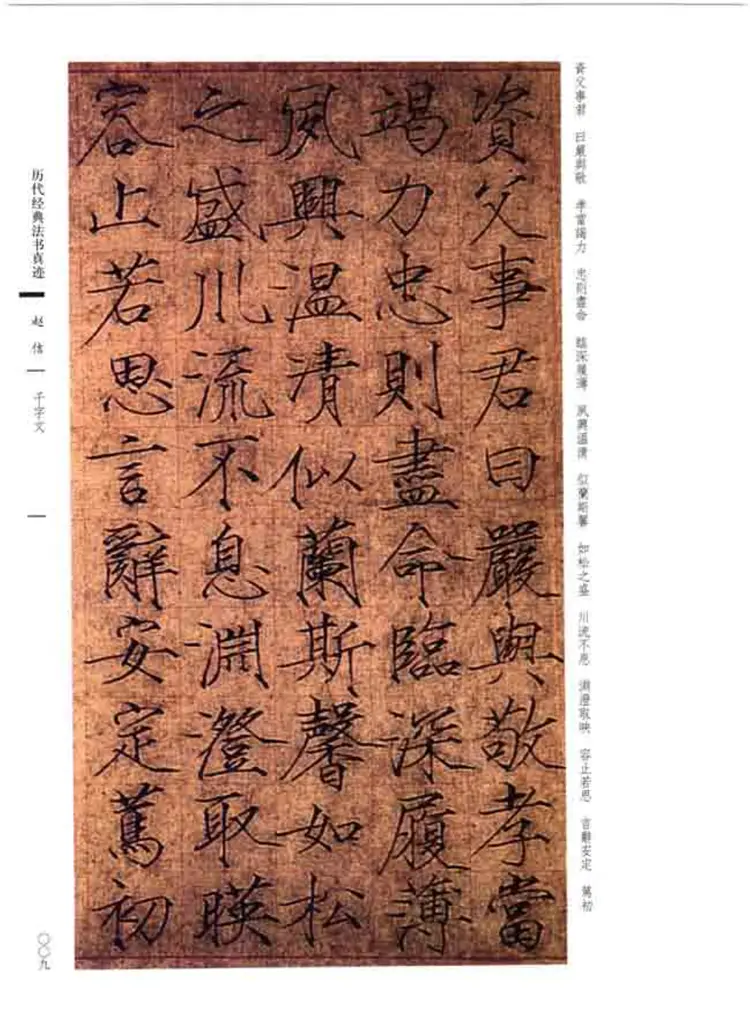 資父事君 曰嚴與敬 孝當竭力 忠則盡命 臨深履薄 夙興溫清 似蘭斯馨 如松之盛 川流不息 淵澄取映 容止若思 言辭安定 篤初
資父事君曰嚴與敬孝當
竭力忠則盡命臨深履薄
夙興温清似蘭斯馨如松
之盛川流不息淵澄取暎
容止若思言辭安定篤初
历代经典法书真迹 赵佶 千字文
〇〇九